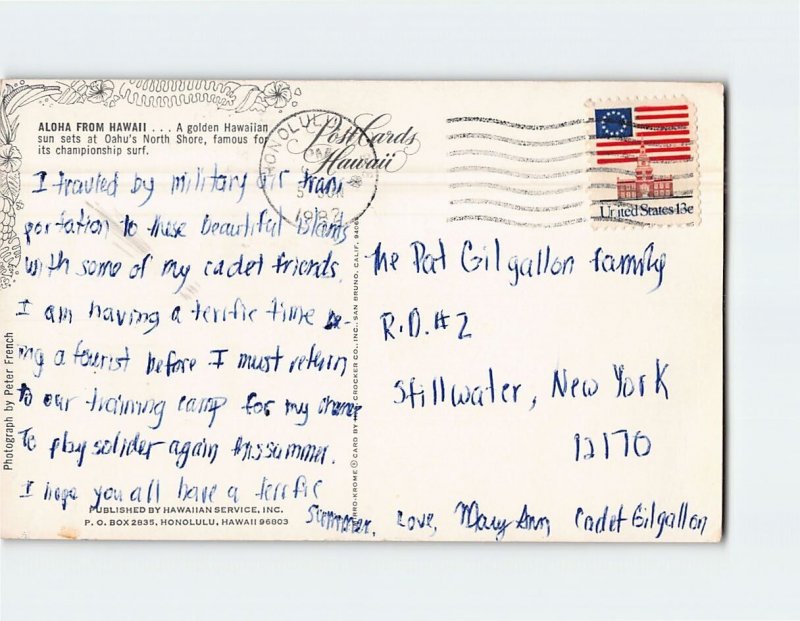 ALOHA FROM HAWAII . . . A golden Hawaiian
sun sets at Oahu's North Shore, famous for
its championship surf.
HONOLULU
PostCards
Hawaii
United States 13c
I travled by military air trans
portation to these beautiful Islands
with some of my cadet friends.
I am having a terrific time be-
ing a tourist before I must return
to our training camp for my chance
To play solider again this summer.
I hope you all have a terrific
summer. Love, Mary Ann, Cadet Gilgallon
The Pat Gilgallon family
R.D. #2
Stillwater, New York
12170
Photograph by Peter French
CROCKER CO., INC., SAN BRUNO, CALIF.
PUBLISHED BY HAWAIIAN SERVICE, INC.
P. O. BOX 2835, HONOLULU, HAWAII 96803